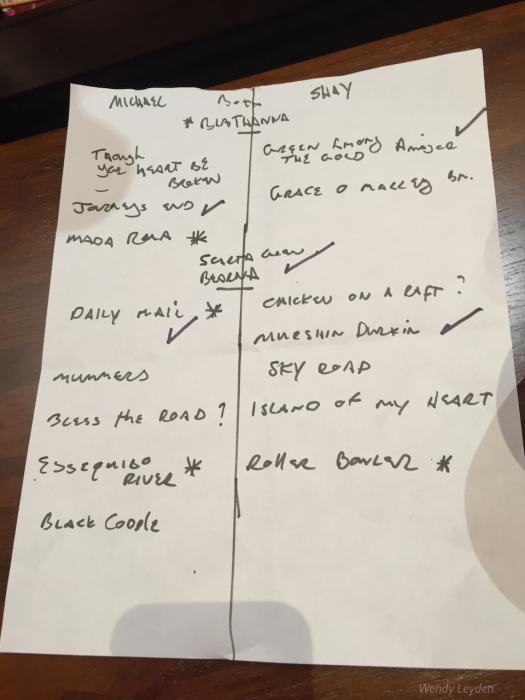 MICHAEL
Both
SHAY
* BLATHANNA
Though
your HEART BE
BROKEN
JOURNEYS END ✓
MADA RUA *
DAILY MAIL *
✓
MUMMERS
BLESS the ROAD ?
ESSEQUIBO *
RIVER
BLACK
GREEN Among
THE GOLD
✓
GRACE O MALLEY
✓
BEARNA
CHICKEN ON A RAFT ?
MURSHIN DURKIN ✓
SKY ROAD
ISLAND OF MY HEART
Roller Bowler *
Wendy Leyden